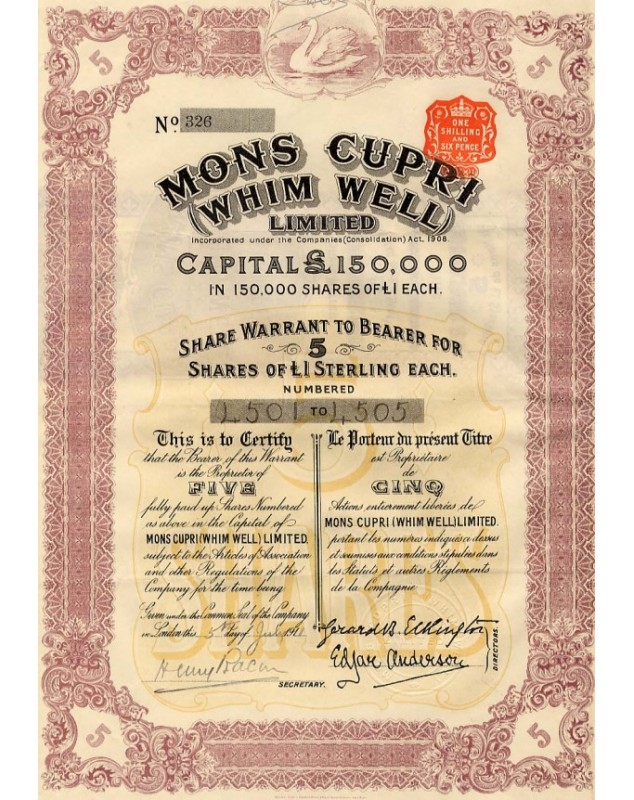 5
5
No. 326
ONE
SHILLING
AND
SIX PENCE
MONS CUPRI
(WHIM WELL)
LIMITED
Incorporated under the Companies (Consolidation) Act, 1908.
CAPITAL £150,000
IN 150,000 SHARES OF £1 EACH.
SHARE WARRANT TO BEARER FOR
5
SHARES OF £1 STERLING EACH.
NUMBERED
1,501 TO 1,505
This is to Certify
that the Bearer of this Warrant
is the Proprietor of
FIVE
fully paid up Shares Numbered
as above in the Capital of
MONS CUPRI (WHIM WELL) LIMITED,
subject to the Articles of Association
and other Regulations of the
Company for the time being
Given under the Common Seal of the Company
in London this 5th day of July
Le Porteur du présent Titre
est Propriétaire
de
CINQ
Actions entièrement liberées de
MONS CUPRI (WHIM WELL) LIMITED.
portant les numéros indiqués ce dessus
et soumises aux conditions stipulées dans
les Statuts et autres Règlements
de la Compagnie
Gerard B. Elkington
Edgar Anderson
DIRECTORS.
Henry Bacon
SECRETARY.
5
5